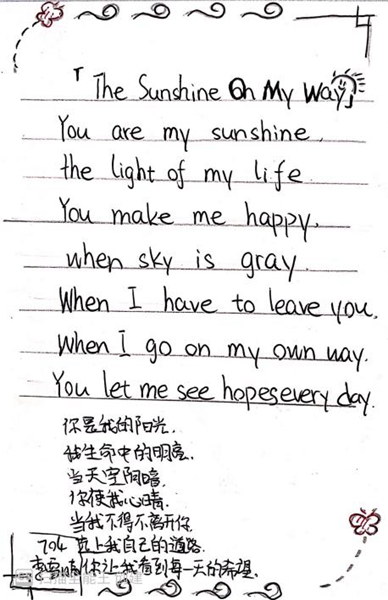 「The Sunshine On My Way」
You are my sunshine,
the light of my life.
You make me happy,
when sky is gray.
When I have to leave you,
When I go on my own way.
You let me see hopes every day.
你是我的阳光,
生命中的明亮.
当天空阴暗,
你使我心晴.
当我不得不离开你
704 踏上我自己的道路.
你让我看到每一天的希望.
扫描全能王 创建